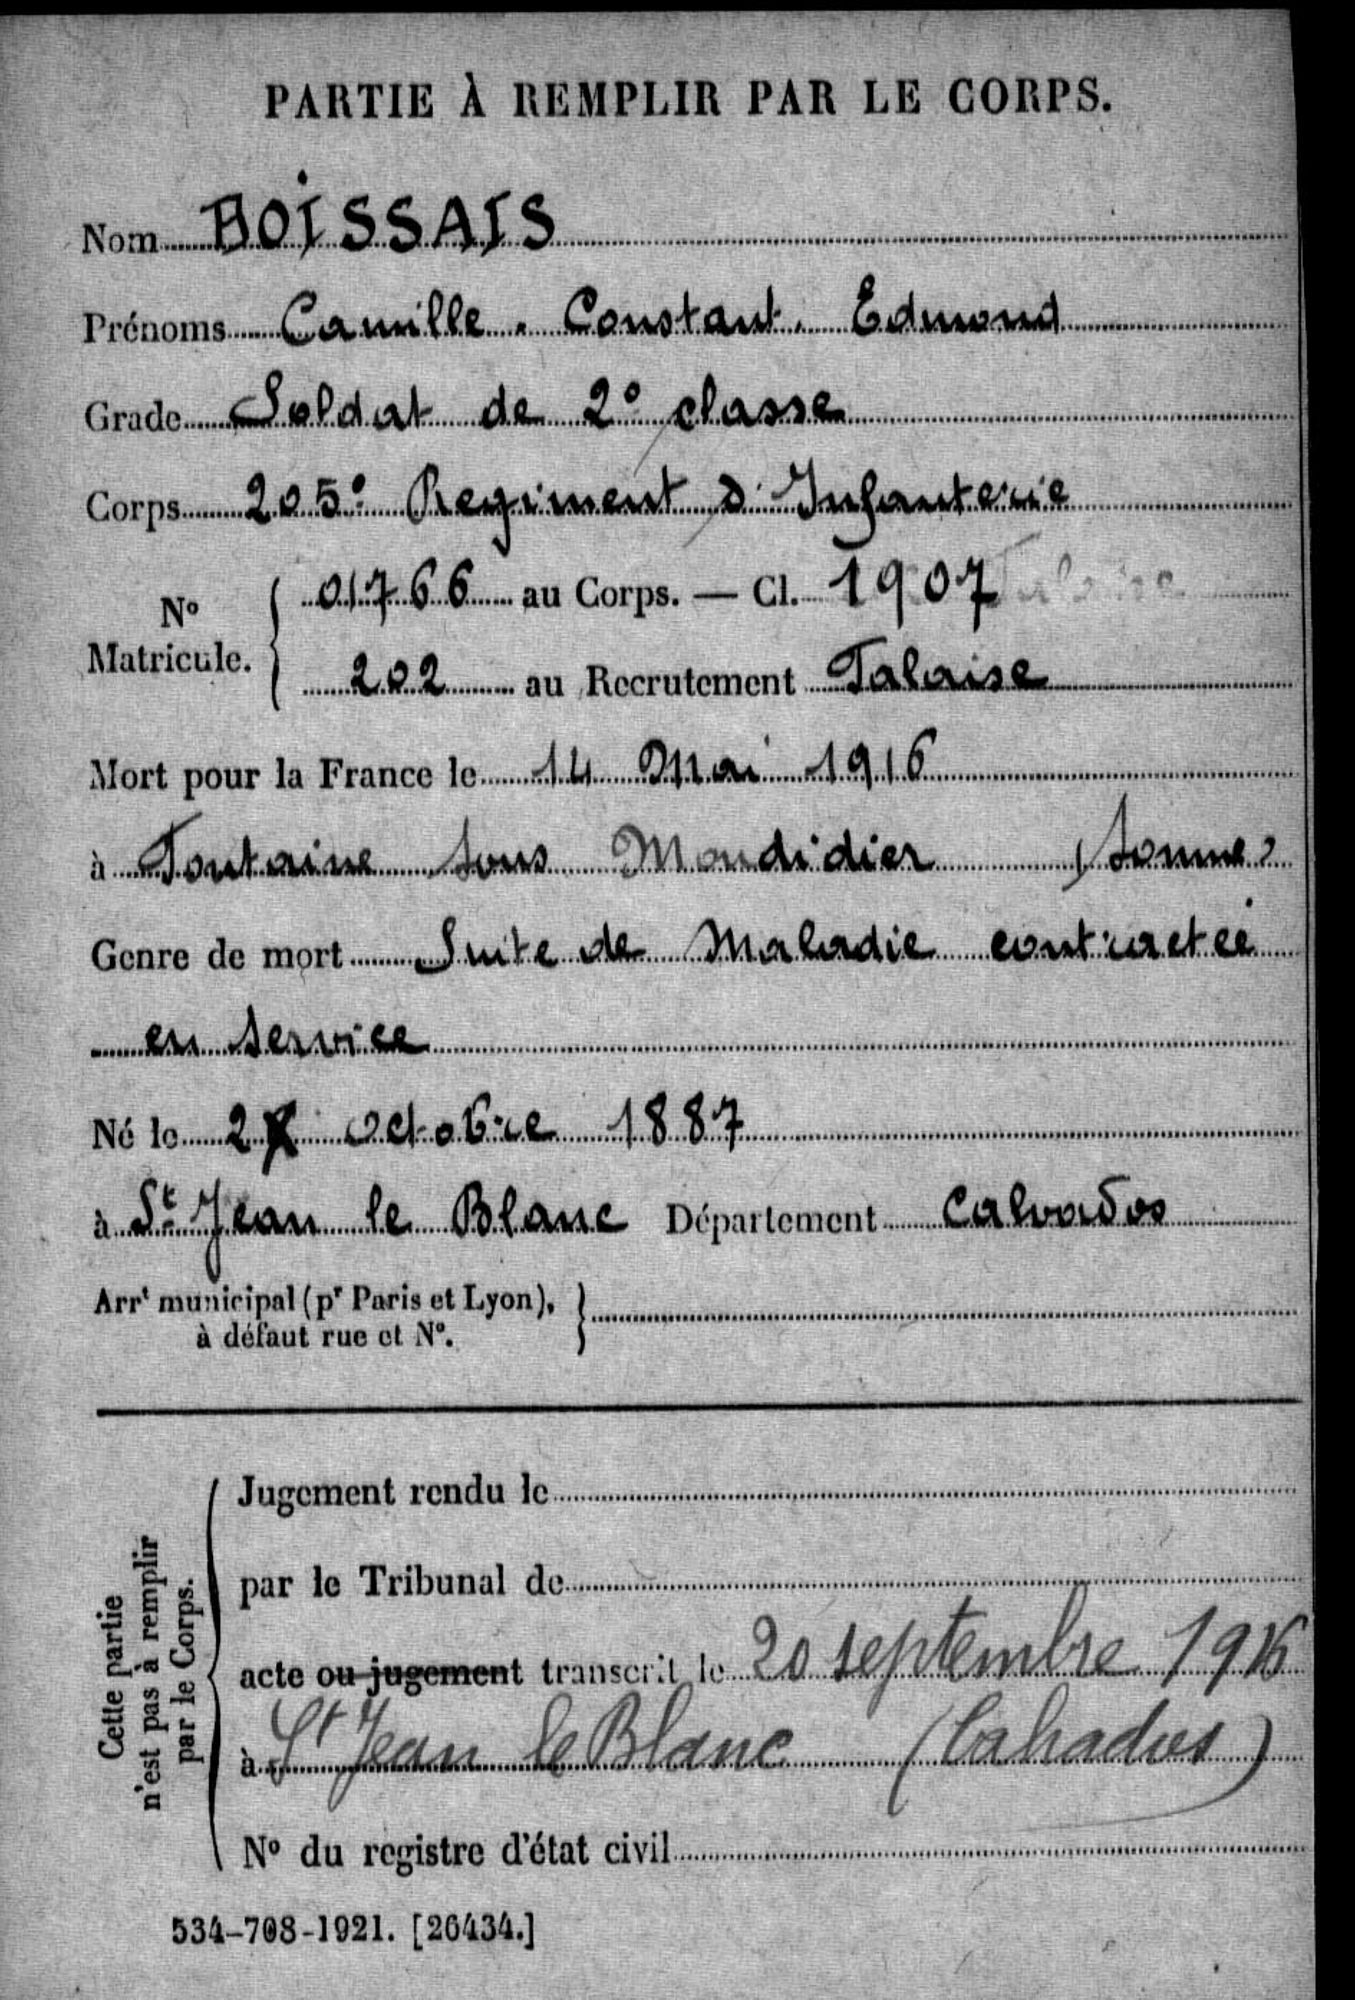 PARTIE À REMPLIR PAR LE CORPS.
Nom BOISSAIS
Prénoms Camille. Constant. Edmond
Grade Soldat de 2e classe
Corps 205e Regiment d'Infanterie
No Matricule. 01766 au Corps. — Cl. 1907
202 au Recrutement Falaise
Mort pour la France le 14 Mai 1916
à Fontaine sous Mondidier (Somme)
Genre de mort Suite de Maladie contractée
en service
Né le 2 octobre 1887
à St Jean le Blanc Département Calvados
Arrt municipal (pr Paris et Lyon),
à défaut rue et No.
Cette partie
n'est pas à remplir
par le Corps.
Jugement rendu le
par le Tribunal de
acte ou jugement transcrit le 20 septembre 1916
à St Jean le Blanc (Calvados)
No du registre d'état civil
534-708-1921. [26434.]